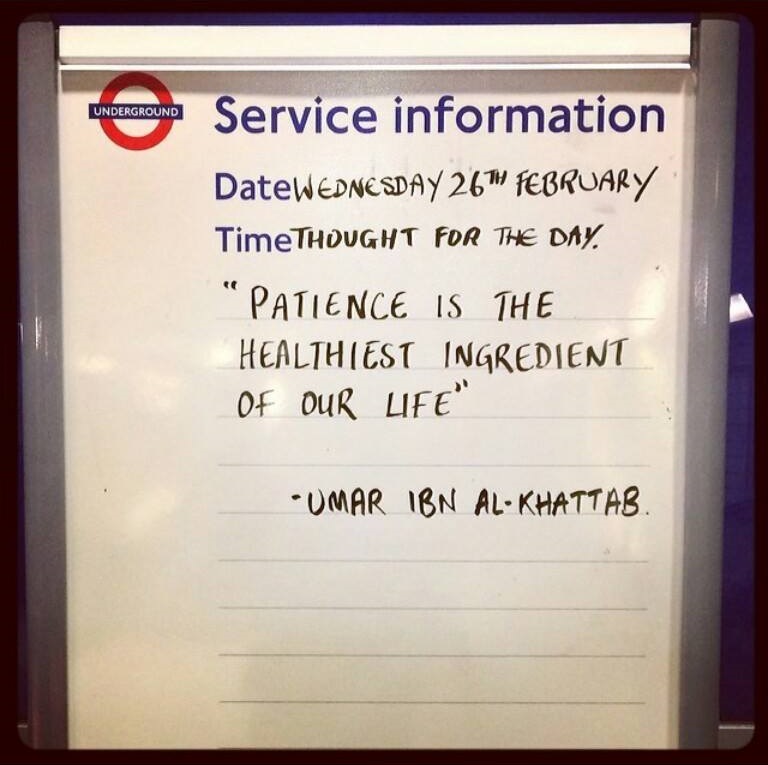 UNDERGROUND
Service information
Date WEDNESDAY 26TH FEBRUARY
Time THOUGHT FOR THE DAY.
"PATIENCE IS THE
HEALTHIEST INGREDIENT
OF OUR LIFE"
-UMAR IBN AL-KHATTAB.